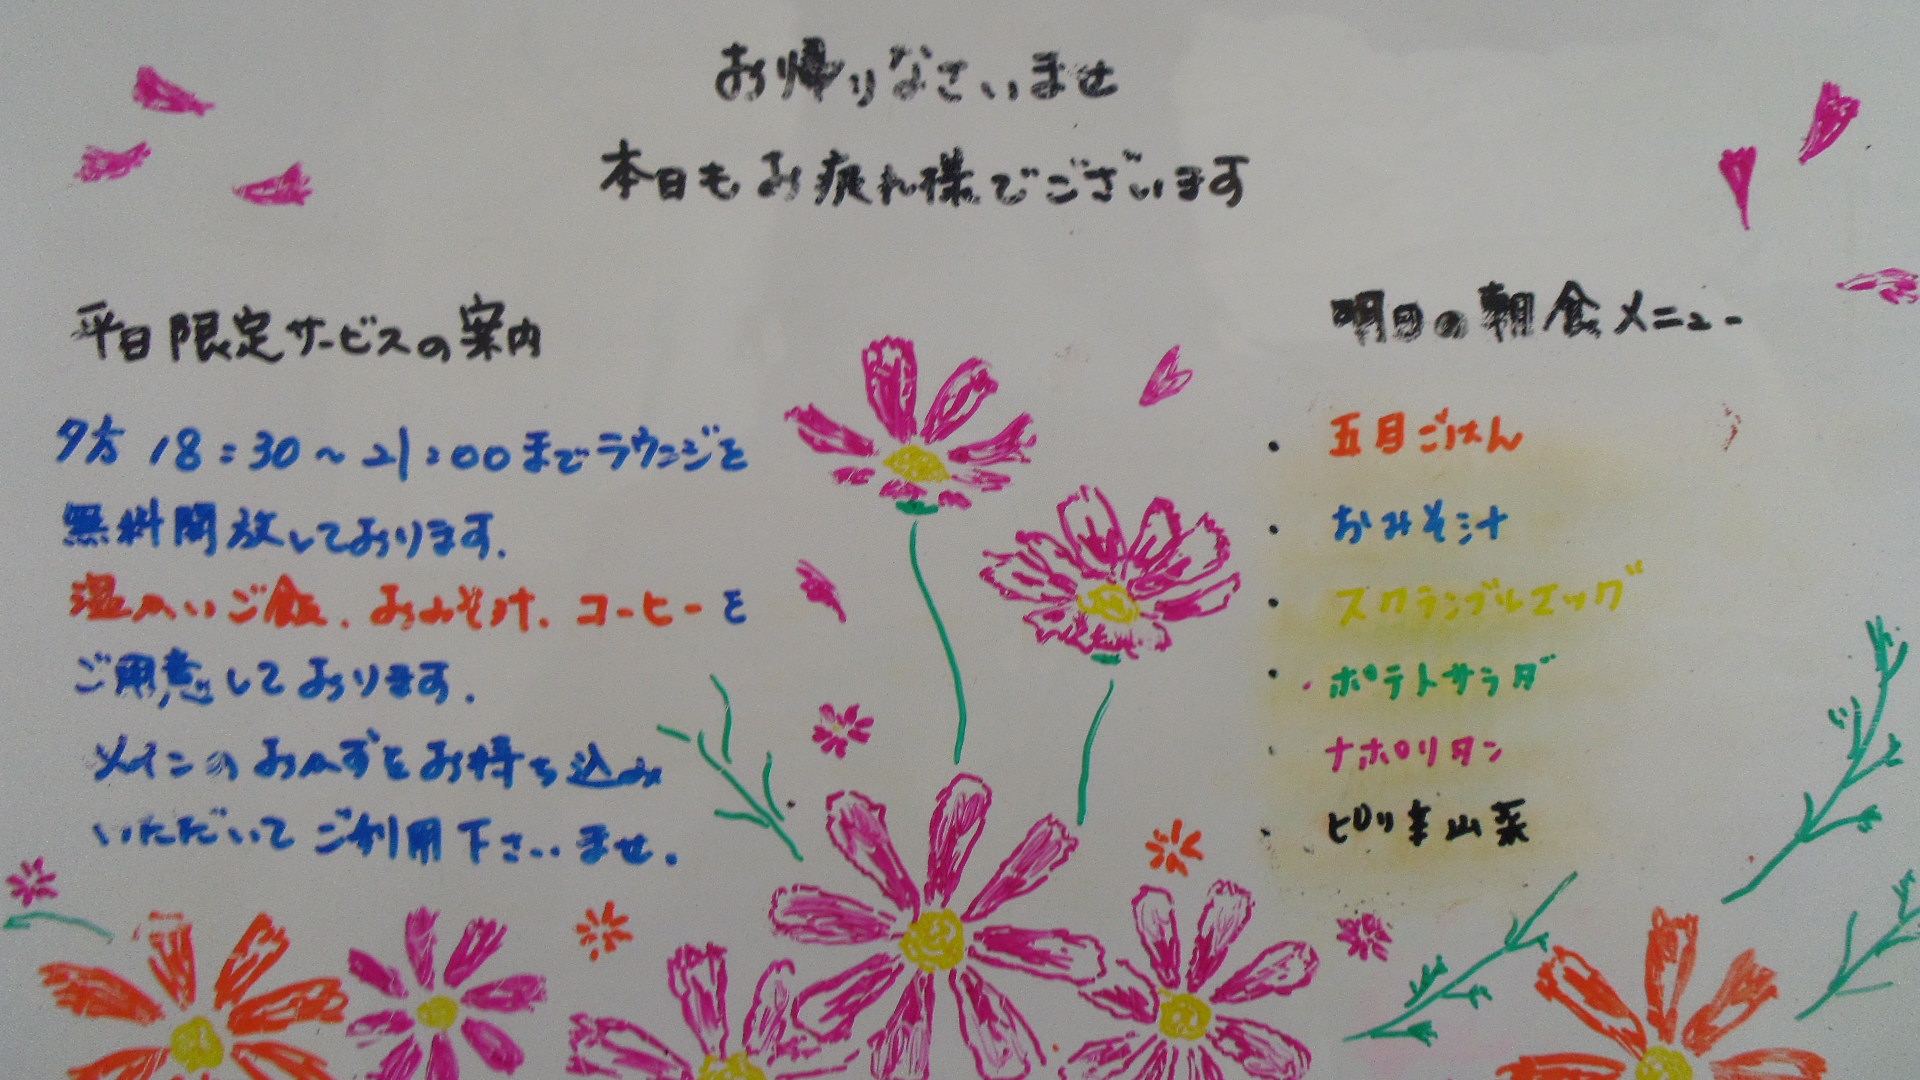 お帰りなさいませ
本日もお疲れ様でございます
平日限定サービスの案内
夕方 18:30～21:00までラウンジを
無料開放しております.
温かいご飯、おみそ汁、コーヒーを
ご用意しております.
メインのおかずをお持ち込み
いただいてご利用下さいませ.
明日の朝食メニュー
・五目ごはん
・おみそ汁
・スクランブルエッグ
・ポテトサラダ
・ナポリタン
・ピリ辛山菜